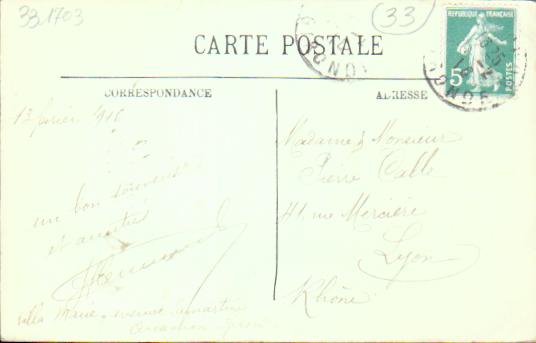 33.1703
33
CARTE POSTALE
REPUBLIQUE FRANÇAISE
5c
POSTES
GIRONDE
GIRONDE
CORRESPONDANCE
ADRESSE
13 février 916
un bon souvenir
et amitiés
Villa Marie avenue Lamartine
Arcachon Gironde
Madame & Monsieur
Pierre Calle
41 rue Mercière
Lyon
Rhône